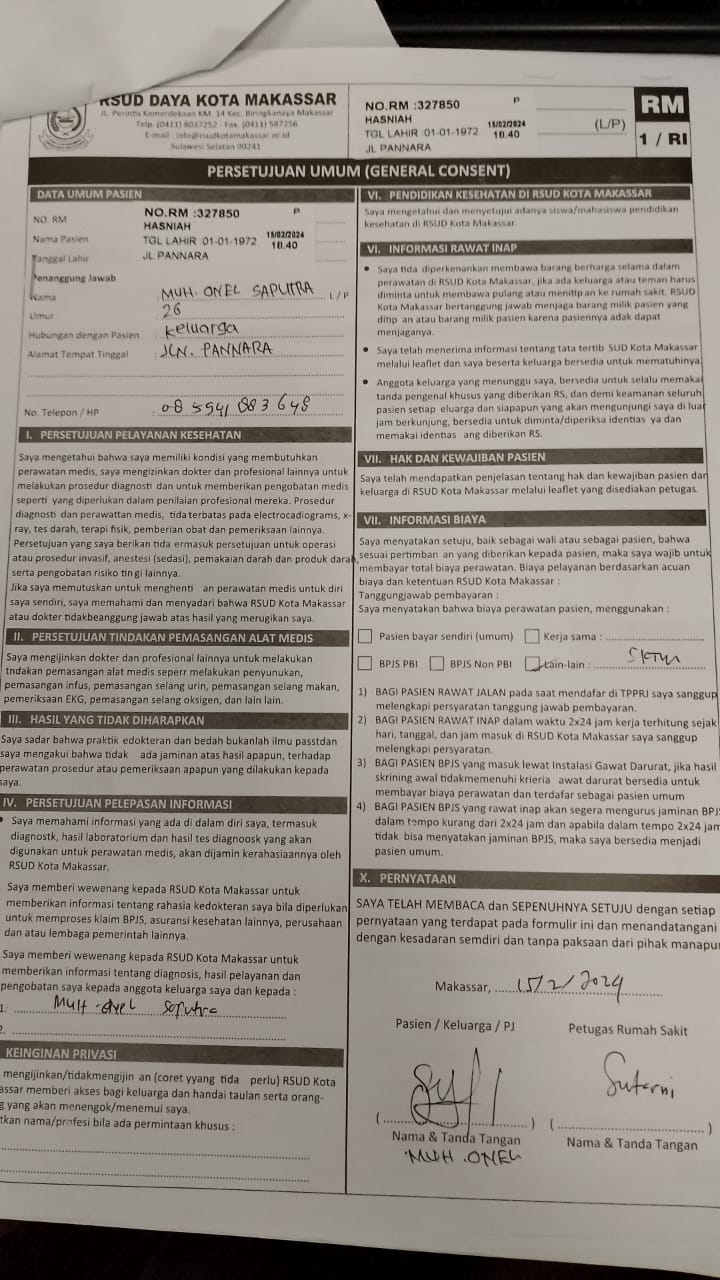 RSUD DAYA KOTA MAKASSAR
JL. Perintis Kemerdekaan KM. 14 Kec. Biringkanaya Makassar
Telp. (0411) 8037252 - Fax. (0411) 587256
E-mail : info@rsudkotamakassar.or.id
Sulawesi Selatan 90241
NO.RM :327850 P
HASNIAH 15/02/2024
TGL LAHIR :01-01-1972 10.40
JL PANNARA
(L/P)
RM
1 / RI
PERSETUJUAN UMUM (GENERAL CONSENT)
DATA UMUM PASIEN
NO. RM NO.RM :327850 P
Nama Pasien HASNIAH 15/02/2024
Tanggal Lahir TGL LAHIR :01-01-1972 10.40
JL PANNARA
Penanggung Jawab
Nama : MUH. ONEL SAPUTRA L / P
Umur : 26
Hubungan dengan Pasien : Keluarga
Alamat Tempat Tinggal : JLN. PANNARA
No. Telepon / HP :
I. PERSETUJUAN PELAYANAN KESEHATAN
Saya mengetahui bahwa saya memiliki kondisi yang membutuhkan
perawatan medis, saya mengizinkan dokter dan profesional lainnya untuk
melakukan prosedur diagnosti dan untuk memberikan pengobatan medis
seperti yang diperlukan dalam penilaian profesional mereka. Prosedur
diagnosti dan perawattan medis, tida terbatas pada electrocadiograms, x-
ray, tes darah, terapi fisik, pemberian obat dan pemeriksaan lainnya.
Persetujuan yang saya berikan tida ermasuk persetujuan untuk operasi
atau prosedur invasif, anestesi (sedasi), pemakaian darah dan produk darah,
serta pengobatan risiko tin gi lainnya.
Jika saya memutuskan untuk menghenti an perawatan medis untuk diri
saya sendiri, saya memahami dan menyadari bahwa RSUD Kota Makassar
atau dokter tidakbeanggung jawab atas hasil yang merugikan saya.
II. PERSETUJUAN TINDAKAN PEMASANGAN ALAT MEDIS
Saya mengijinkan dokter dan profesional lainnya untuk melakukan
tndakan pemasangan alat medis seperr melakukan penyunukan,
pemasangan infus, pemasangan selang urin, pemasangan selang makan,
pemeriksaan EKG, pemasangan selang oksigen, dan lain lain.
III. HASIL YANG TIDAK DIHARAPKAN
Saya sadar bahwa praktik edokteran dan bedah bukanlah ilmu passtdan
saya mengakui bahwa tidak ada jaminan atas hasil apapun, terhadap
perawatan prosedur atau pemeriksaan apapun yang dilakukan kepada
saya.
IV. PERSETUJUAN PELEPASAN INFORMASI
• Saya memahami informasi yang ada di dalam diri saya, termasuk
diagnostk, hasil laboratorium dan hasil tes diagnoosk yang akan
digunakan untuk perawatan medis, akan dijamin kerahasiaannya oleh
RSUD Kota Makassar.
Saya memberi wewenang kepada RSUD Kota Makassar untuk
memberikan informasi tentang rahasia kedokteran saya bila diperlukan
untuk memproses klaim BPJS, asuransi kesehatan lainnya, perusahaan
dan atau lembaga pemerintah lainnya.
Saya memberi wewenang kepada RSUD Kota Makassar untuk
memberikan informasi tentang diagnosis, hasil pelayanan dan
pengobatan saya kepada anggota keluarga saya dan kepada :
1. MUH. onel Saputra
2.
KEINGINAN PRIVASI
mengijinkan/tidakmengijin an (coret yyang tida perlu) RSUD Kota
assar memberi akses bagi keluarga dan handai taulan serta orang-
g yang akan menengok/menemui saya.
tkan nama/profesi bila ada permintaan khusus :
VI. PENDIDIKAN KESEHATAN DI RSUD KOTA MAKASSAR
Saya mengetahui dan menyetujui adanya siswa/mahasiswa pendidikan
kesehatan di RSUD Kota Makassar.
VI. INFORMASI RAWAT INAP
• Saya tida diperkenankan membawa barang berharga selama dalam
perawatan di RSUD Kota Makassar, jika ada keluarga atau teman harus
diminta untuk membawa pulang atau menitip an ke rumah sakit. RSUD
Kota Makassar bertanggung jawab menjaga barang milik pasien yang
ditip an atau barang milik pasien karena pasiennya adak dapat
menjaganya.
• Saya telah menerima informasi tentang tata tertib SUD Kota Makassar
melalui leaflet dan saya beserta keluarga bersedia untuk mematuhinya.
• Anggota keluarga yang menunggu saya, bersedia untuk selalu memakai
tanda pengenal khusus yang diberikan RS, dan demi keamanan seluruh
pasien setiap eluarga dan siapapun yang akan mengunjungi saya di luar
jam berkunjung, bersedia untuk diminta/diperiksa identias ya dan
memakai identias ang diberikan RS.
VII. HAK DAN KEWAJIBAN PASIEN
Saya telah mendapatkan penjelasan tentang hak dan kewajiban pasien dan
keluarga di RSUD Kota Makassar melalui leaflet yang disediakan petugas.
VII. INFORMASI BIAYA
Saya menyatakan setuju, baik sebagai wali atau sebagai pasien, bahwa
sesuai pertimban an yang diberikan kepada pasien, maka saya wajib untuk
membayar total biaya perawatan. Biaya pelayanan berdasarkan acuan
biaya dan ketentuan RSUD Kota Makassar :
Tanggungjawab pembayaran :
Saya menyatakan bahwa biaya perawatan pasien, menggunakan :
Pasien bayar sendiri (umum) Kerja sama :
BPJS PBI BPJS Non PBI Lain-lain : SKTM
1) BAGI PASIEN RAWAT JALAN pada saat mendafar di TPPRJ saya sanggup
melengkapi persyaratan tanggung jawab pembayaran.
2) BAGI PASIEN RAWAT INAP dalam waktu 2x24 jam kerja terhitung sejak
hari, tanggal, dan jam masuk di RSUD Kota Makassar saya sanggup
melengkapi persyaratan.
3) BAGI PASIEN BPJS yang masuk lewat Instalasi Gawat Darurat, jika hasil
skrining awal tidakmemenuhi krieria awat darurat bersedia untuk
membayar biaya perawatan dan terdafar sebagai pasien umum
4) BAGI PASIEN BPJS yang rawat inap akan segera mengurus jaminan BPJS
dalam tempo kurang dari 2x24 jam dan apabila dalam tempo 2x24 jam
tidak bisa menyatakan jaminan BPJS, maka saya bersedia menjadi
pasien umum.
X. PERNYATAAN
SAYA TELAH MEMBACA dan SEPENUHNYA SETUJU dengan setiap
pernyataan yang terdapat pada formulir ini dan menandatangani
dengan kesadaran semdiri dan tanpa paksaan dari pihak manapun
Makassar, 15/2/2024
Pasien / Keluarga / PJ Petugas Rumah Sakit
Sutarni
(..............................) (..............................)
Nama & Tanda Tangan Nama & Tanda Tangan
MUH. ONEL